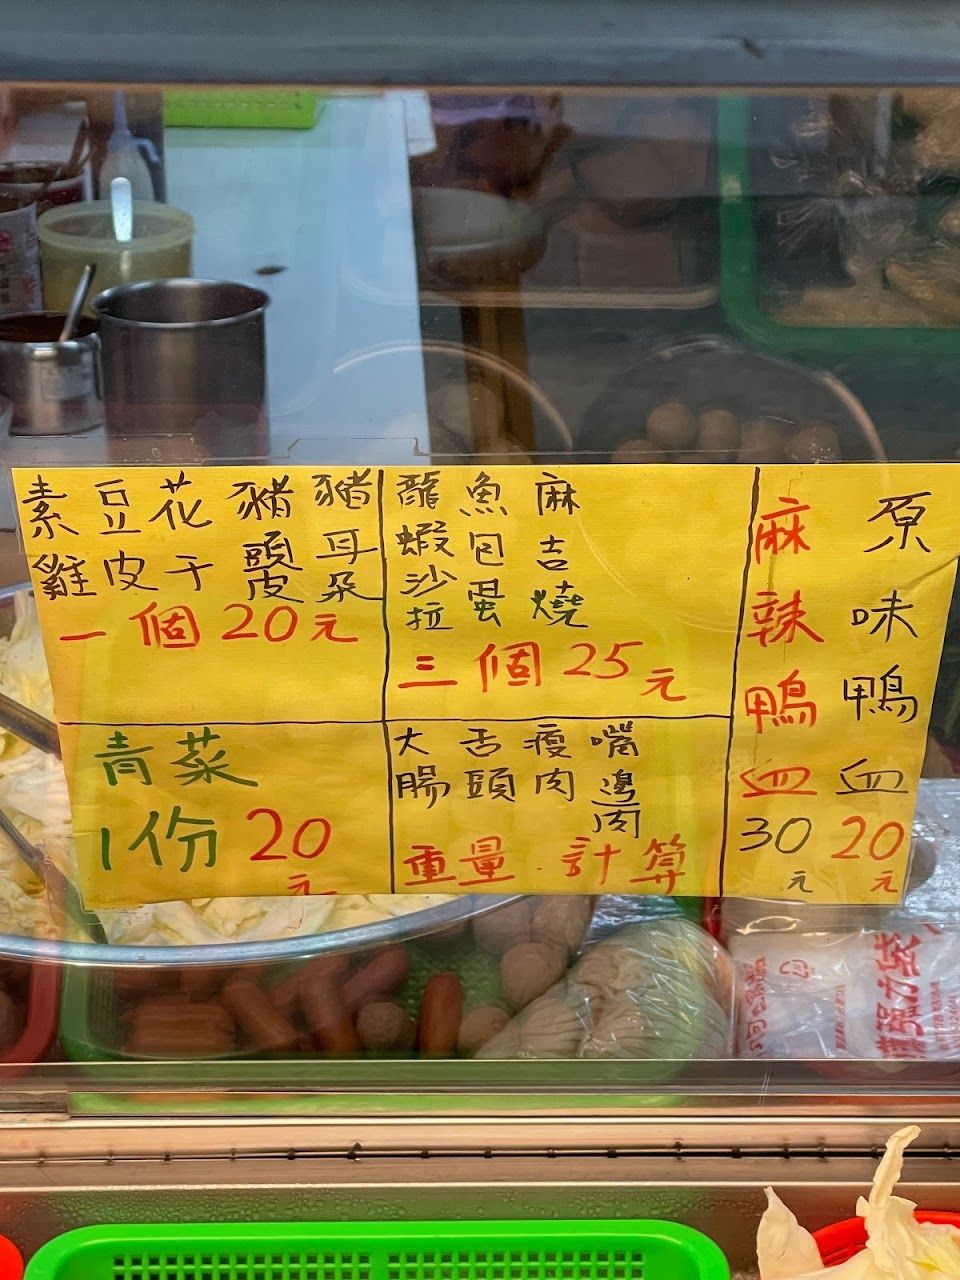 素雞
豆皮
花干
豬頭皮
豬耳朵
一個20元
龍蝦沙拉
魚包蛋
麻吉燒
三個25元
麻辣鴨血
30元
原味鴨血
20元
青菜
1份20元
大腸
舌頭
瘦肉
嘴邊肉
重量計算